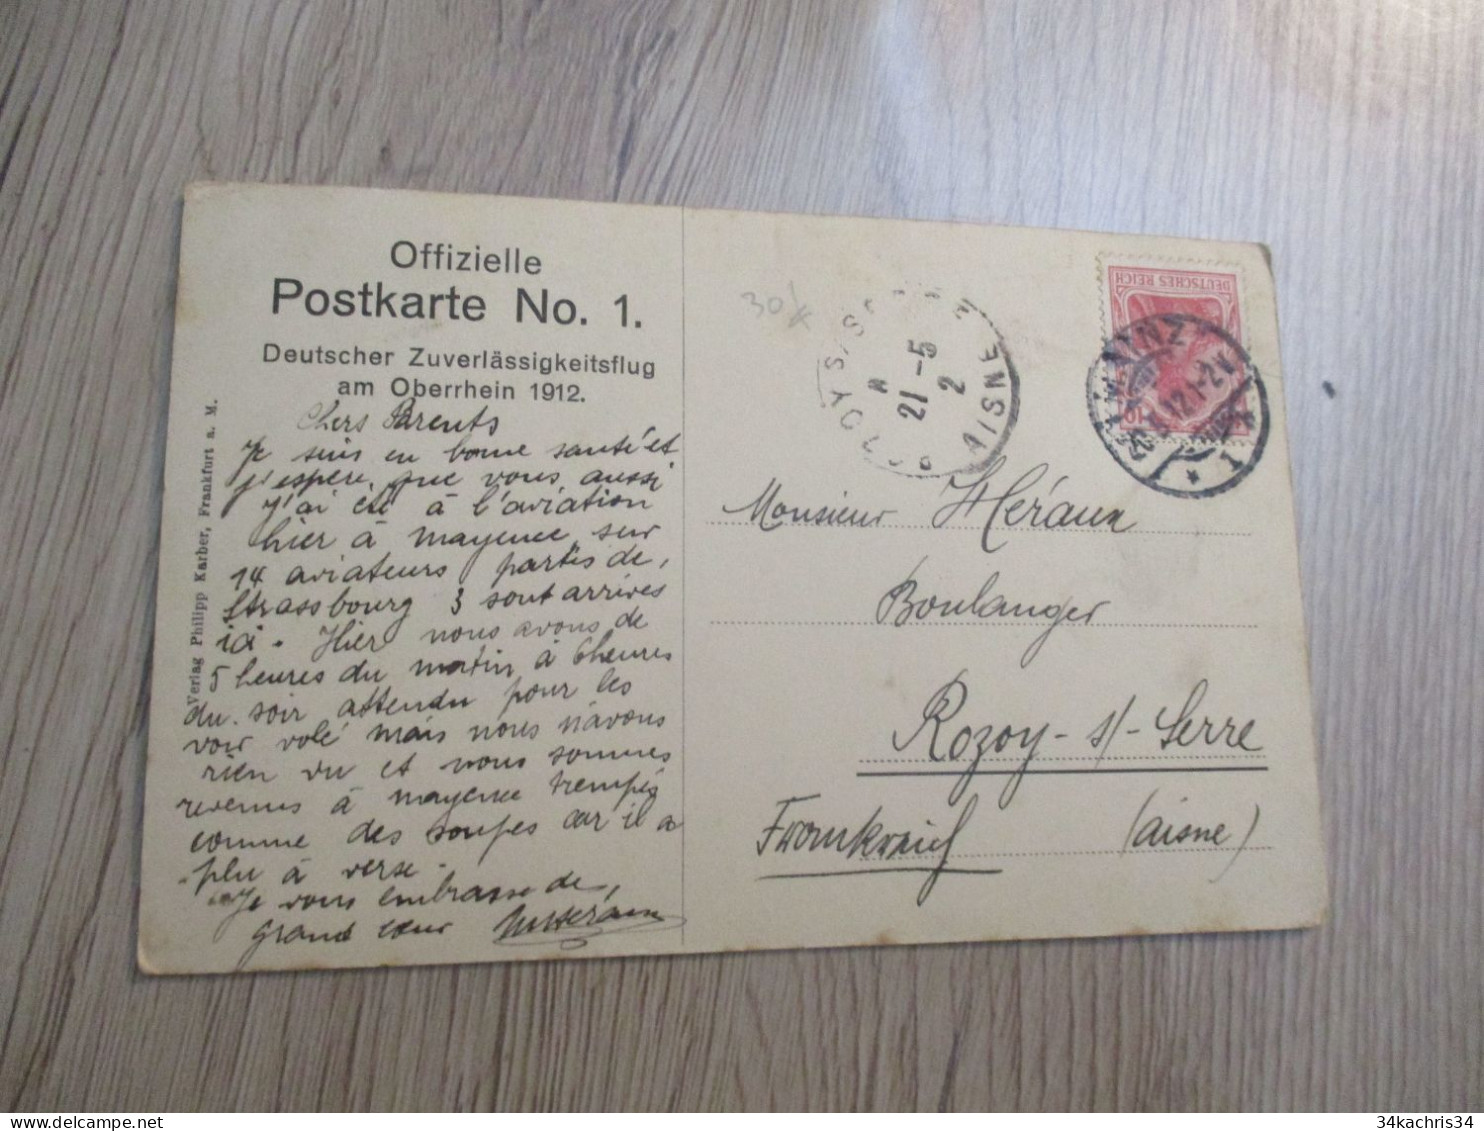 Offizielle
Postkarte No. 1.
Deutscher Zuverlässigkeitsflug
am Oberrhein 1912.
Chers Parents
Je suis en bonne santé et
j'espère que vous aussi
J'ai été à l'aviation
hier à mayence sur
14 aviateurs partis de,
Strassbourg 3 sont arrivés
ici - Hier nous avons de
5 heures du matin à 6 heures
du soir attendu pour les
voir volé mais nous n'avons
rien vu et nous sommes
revenus à mayence trempés
comme des soupes car il a
plu à verse -
Je vous embrasse de,
grand cœur
Verlag Philipp Karber, Frankfurt a. M.
30
21 -5
AISNE
DEUTSCHES REICH
10
MAINZ
1
Monsieur Héraux
Boulanger
Rozoy - s/- Serre
Frankreich (aisne)
34kachris34